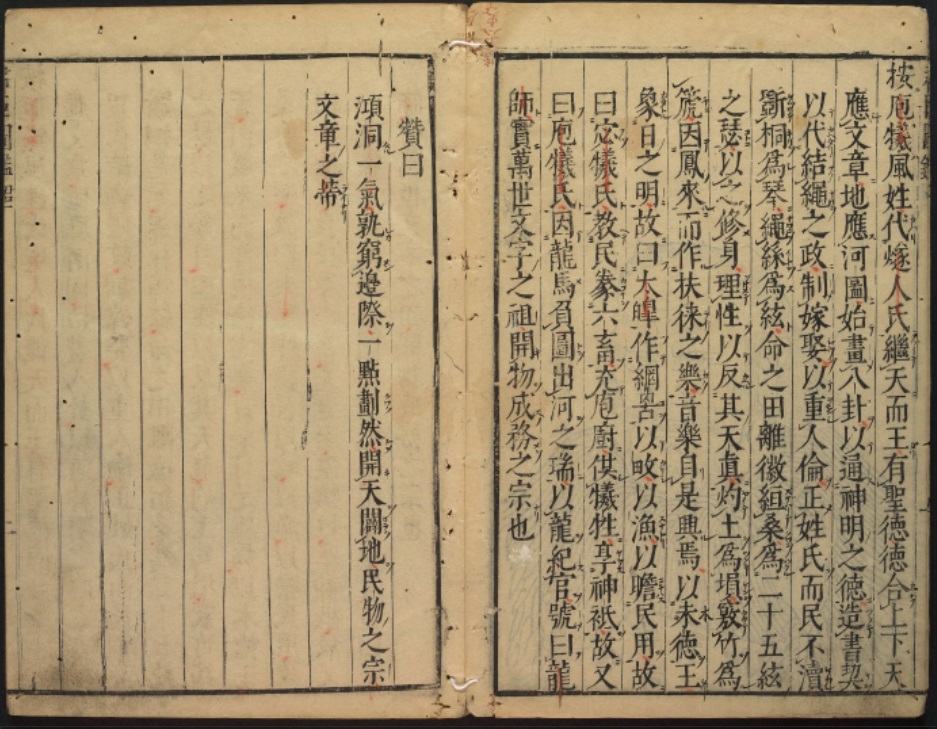 按庖犧風姓代燧人氏繼天而王有聖德德合上下天
應文章地應河圖始畫八卦以通神明之德造書契
以代結繩之政制嫁娶以重人倫正姓氏而民不瀆
斵桐爲琴繩絲爲絃命之田離徽絙桑爲二十五絃
之瑟以之修身理性以反其天眞灼土爲塤竅竹爲
篪因鳳來而作扶徠之樂音樂自是興焉以木德王
象日之明故曰大皥作網罟以畋以漁以贍民用故
曰宓犧氏教民豢六畜充庖厨供犧牲享神祇故又
曰庖犧氏因龍馬負圖出河之瑞以龍紀官號曰龍
師實萬世文字之祖開物成務之宗也
贊曰
澒洞一氣孰窮邊際一點劃然開天闢地民物之宗
文章之蒂